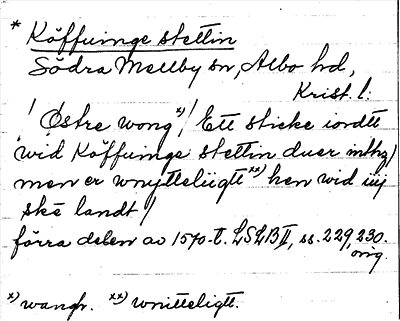 * Köffuinge stettin
Södra Mellby sn, Albo hd,
Krist. l.
/ Østre wong x) / Ett sticke iordtt
wid Köffuinge stettin duer mthz
men er wnytteliigtt xx) hen wid iiij
ske landt /
förra delen av 1570-t. LSLB II, ss. 229, 230.
orig.
x) wangh. xx) wnitteligtt.